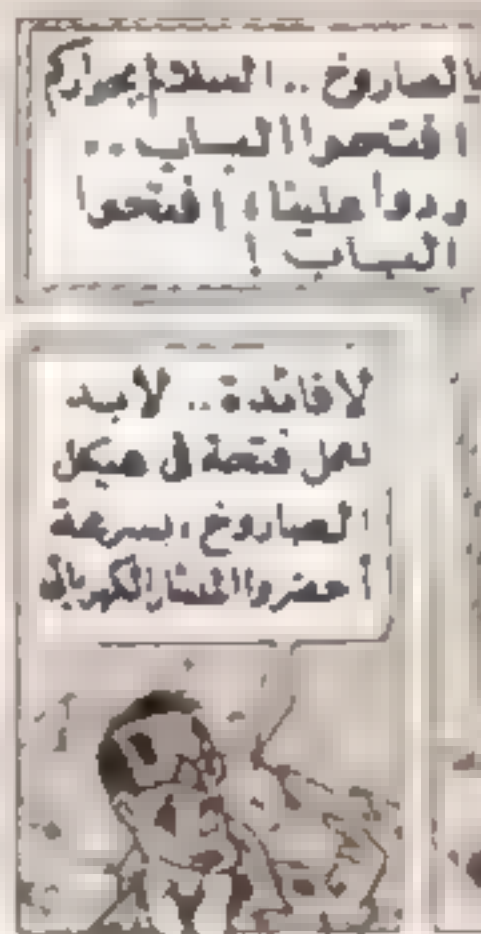 يا لصاروخ .. السلام بجواركم
افتحوا الباب ..
ردوا علينا ، افتحوا
الباب !
لا فائدة .. لابد
نعمل فتحة فى هيكل
الصاروخ ، بسرعة
أحضروا المنشار الكهربائى